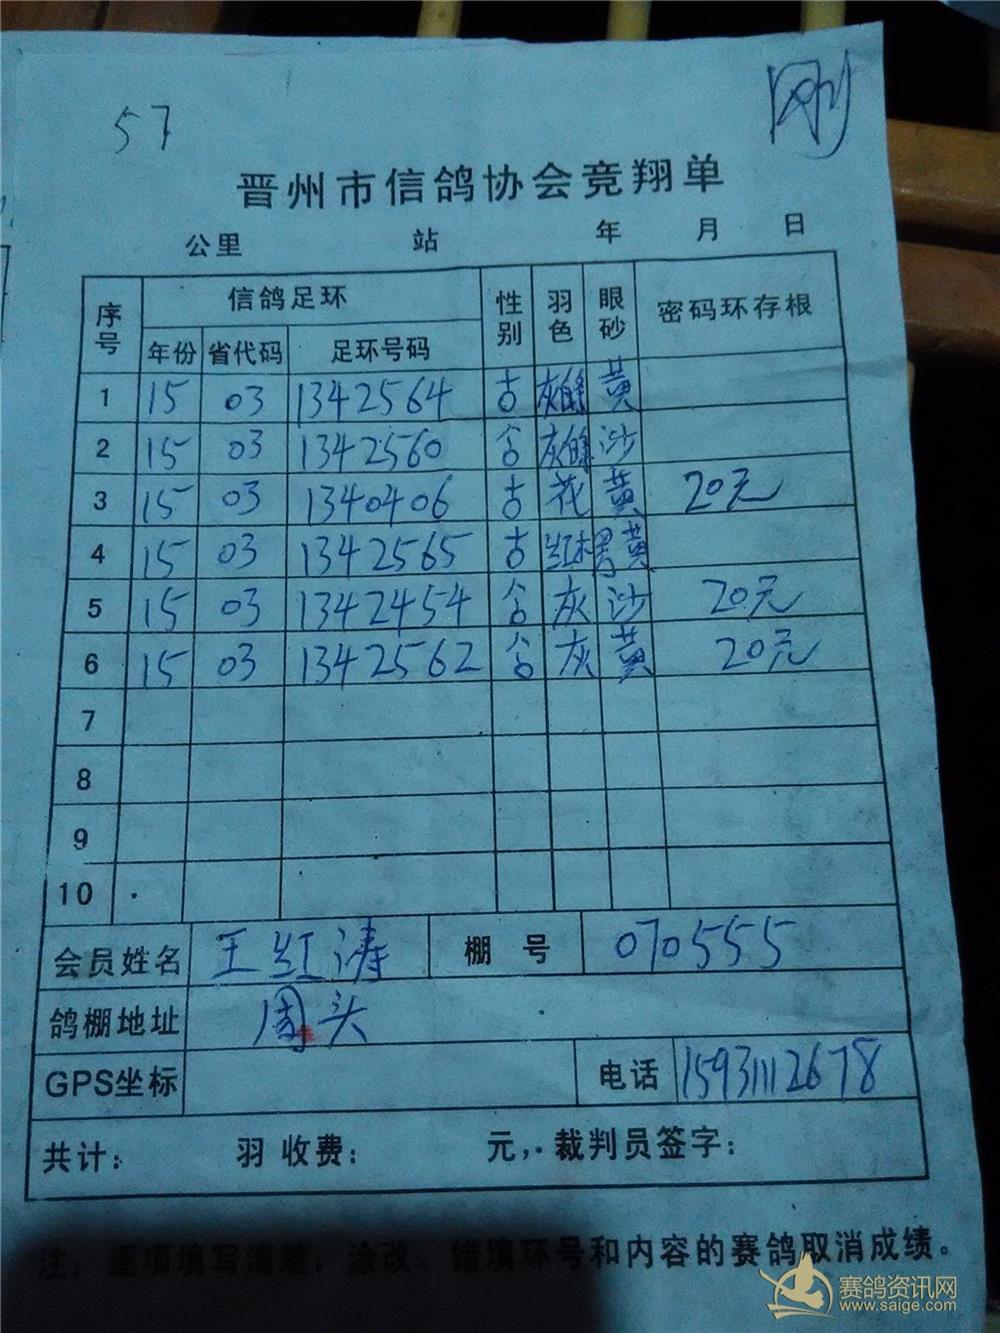 57
刚
晋州市信鸽协会竞翔单
公里 站 年 月 日
序号 信鸽足环 性别 羽色 眼砂 密码环存根
年份 省代码 足环号码
1 15 03 1342564 古 灰 黄
2 15 03 1342560 含 灰 沙
3 15 03 1340406 古 花 黄 20元
4 15 03 1342565 古 红 黄
5 15 03 1342454 含 灰 沙 20元
6 15 03 1342562 含 灰 黄 20元
7
8
9
10
会员姓名 王红涛 棚号 070555
鸽棚地址 周头
GPS坐标 电话 15931112678
共计： 羽 收费： 元，. 裁判员签字：
注：逐项填写清楚，涂改、错填环号和内容的赛鸽取消成绩。
赛鸽资讯网
www.saige.com